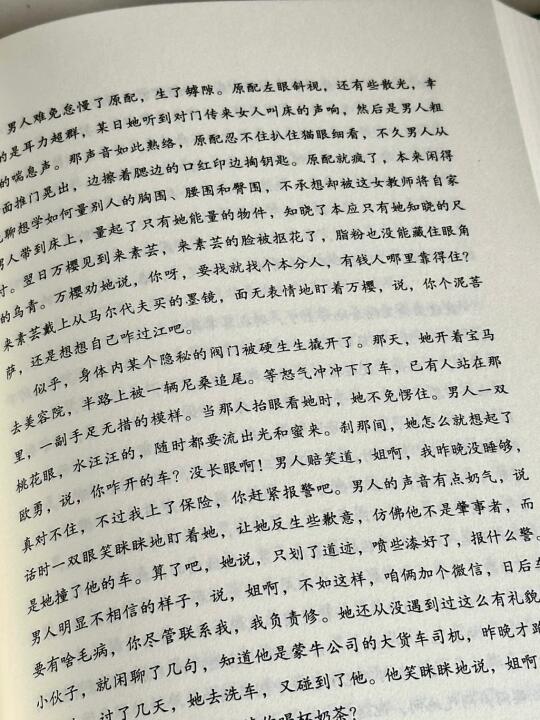 男人难免怠慢了原配，生了罅隙。原配左眼斜视，还有些散光，幸
的是耳力超群，某日她听到对门传来女人叫床的声响，然后是男人粗
的喘息声。那声音如此熟络，原配忍不住扒住猫眼细看，不久男人从
面推门晃出，边擦着腮边的口红印边掏钥匙。原配就疯了，本来闲得
聊想学如何量别人的胸围、腰围和臀围，不承想却被这女教师将自家
男人带到床上，量起了只有她能量的物件，知晓了本应只有她知晓的尺
寸。翌日万樱见到来素芸，来素芸的脸被抠花了，脂粉也没能藏住眼角
的乌青。万樱劝她说，你呀，要找就找个本分人，有钱人哪里靠得住？
来素芸戴上从马尔代夫买的墨镜，面无表情地盯着万樱，说，你个泥菩
萨，还是想想自己咋过江吧。
似乎，身体内某个隐秘的阀门被硬生生撬开了。那天，她开着宝马
去美容院，半路上被一辆尼桑追尾。等怒气冲冲下了车，已有人站在那
里，一副手足无措的模样。当那人抬眼看她时，她不免愣住。男人一双
桃花眼，水汪汪的，随时都要流出光和蜜来。刹那间，她怎么就想起了
欧勇，说，你咋开的车？没长眼啊！男人赔笑道，姐啊，我昨晚没睡够，
真对不住，不过我上了保险，你赶紧报警吧。男人的声音有点奶气，说
话时一双眼笑眯眯地盯着她，让她反生些歉意，仿佛他不是肇事者，而
是她撞了他的车。算了吧，她说，只划了道迹，喷些漆好了，报什么警。
男人明显不相信的样子，说，姐啊，不如这样，咱俩加个微信，日后车
要有啥毛病，你尽管联系我，我负责修。她还从没遇到过这么有礼貌
小伙子，就闲聊了几句，知道他是蒙牛公司的大货车司机，昨晚才跑
过了几天，她去洗车，又碰到了他。他笑眯眯地说，姐啊
你喝杯奶茶？